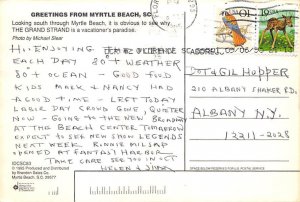 GREETINGS FROM MYRTLE BEACH, SC
Looking south through Myrtle Beach, it is obvious to see why
THE GRAND STRAND is a vacationer's paradise.
Photo by Michael Slear
HI: ENJOYING
EACH DAY 80+ WEATHER
80+ OCEAN - GOOD FOOD
KIDS MARK & NANCY HAD
A GOOD TIME - LEFT TODAY
LABOR DAY CROWD GONE, QUIETER
NOW - GOING TO THE NEW BROADWAY
AT THE BEACH CENTER TOMORROW
EXPECT TO SEE NEW SHOW LEGENDS
NEXT WEEK. RONNIE MILSAP
OPENED AT FANTASY HARBOR
TAKE CARE SEE YOU IN OCT
HELEN &
FLORENCE SC
DOT & GIL HOPPER
210 ALBANY SHAKER RD.
ALBANY N.Y.
12211-2028
© 1995 Produced and Distributed
by Brandon Sales Co.
Myrtle Beach, S.C. 29577
SPACE BELOW RESERVED FOR U.S. POSTAL SERVICE